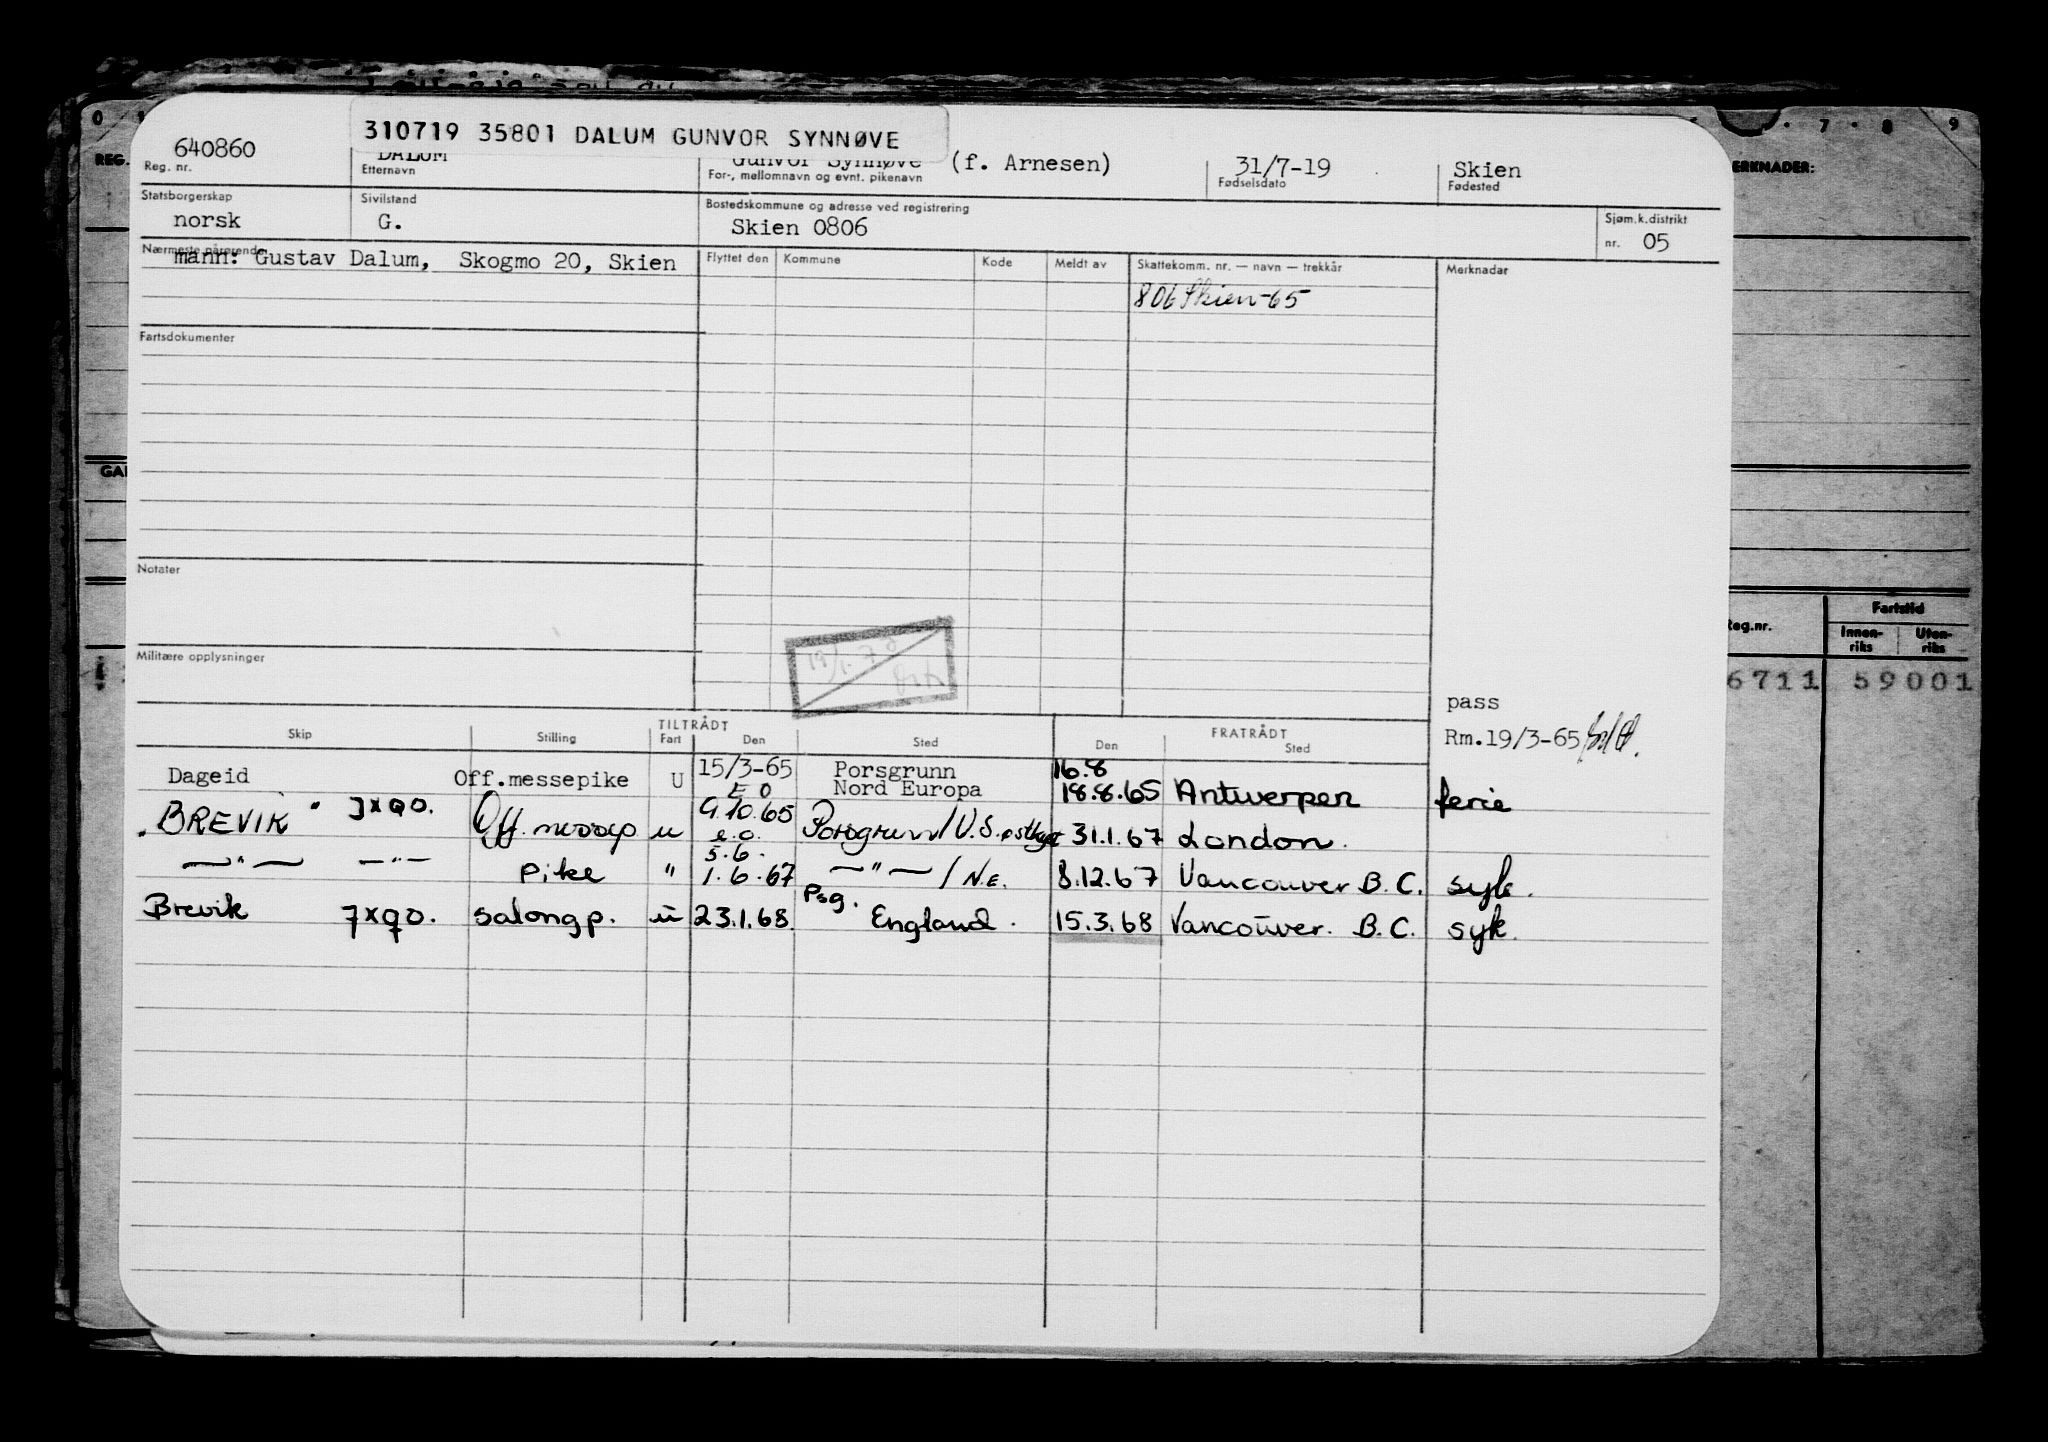 310719 35801 DALUM GUNVOR SYNNØVE
640860 DALUM Gunvor Synnøve (f. Arnesen) 31/7-19 Skien
Reg. nr. Etternavn For-, mellomnavn og evnt. pikenavn Fødselsdato Fødested
Statsborgerskap Sivilstand Bostedskommune og adresse ved registrering Sjøm.k.distrikt
norsk G. Skien 0806 nr. 05
Nærmeste pårørende Flyttet den Kommune Kode Meldt av Skattekomm. nr. — navn — trekkår Merknader
mann: Gustav Dalum, Skogmo 20, Skien
806 Skien-65
Fartsdokumenter
Notater
Militære opplysninger
pass
Rm.19/3-65
TILTRÅDT FRATRÅDT
Skip Stilling Fart Den Sted Den Sted
Dageid Off.messepike U 15/3-65 Porsgrunn 16.8
E O Nord Europa 18.8.65 Antwerpen ferie
"BREVIK" JXQO. Off. messep u 9.10.65 Porsgrunn/U.S. 31.1.67 London.
e.o.
5.6.
—"— —"— pike " 1.6.67 —"—/N.E. 8.12.67 Vancouver B.C. syk.
Brevik JXQO. salongp. u 23.1.68 Psg. England. 15.3.68 Vancouver. B.C. syk.
REG.
GA
7 8 9
ERKNADER:
Reg.nr. Fartstid
Innen-riks Uten-riks
6711 59001